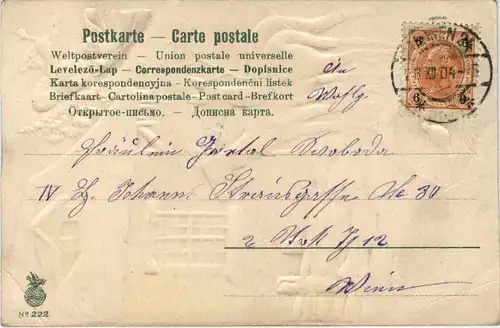 Postkarte — Carte postale
Weltpostverein — Union postale universelle
Levelező-Lap — Correspondenzkarte — Dopisnice
Karta korespondencyjna — Korespondenční listek
Briefkaart - Cartolina postale - Post card - Brefkort
Открытое-письмо. — Дописна карта.
An
Wohlg.
XII 04
6
6
Fräulein Svoboda
IV Bz. Johann Straussgasse No 30
2 Thür 12
Wien
No 222